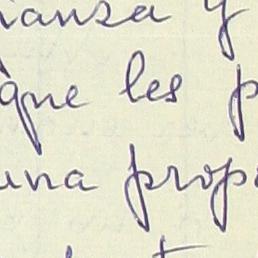 ianza y
que les p
una prop